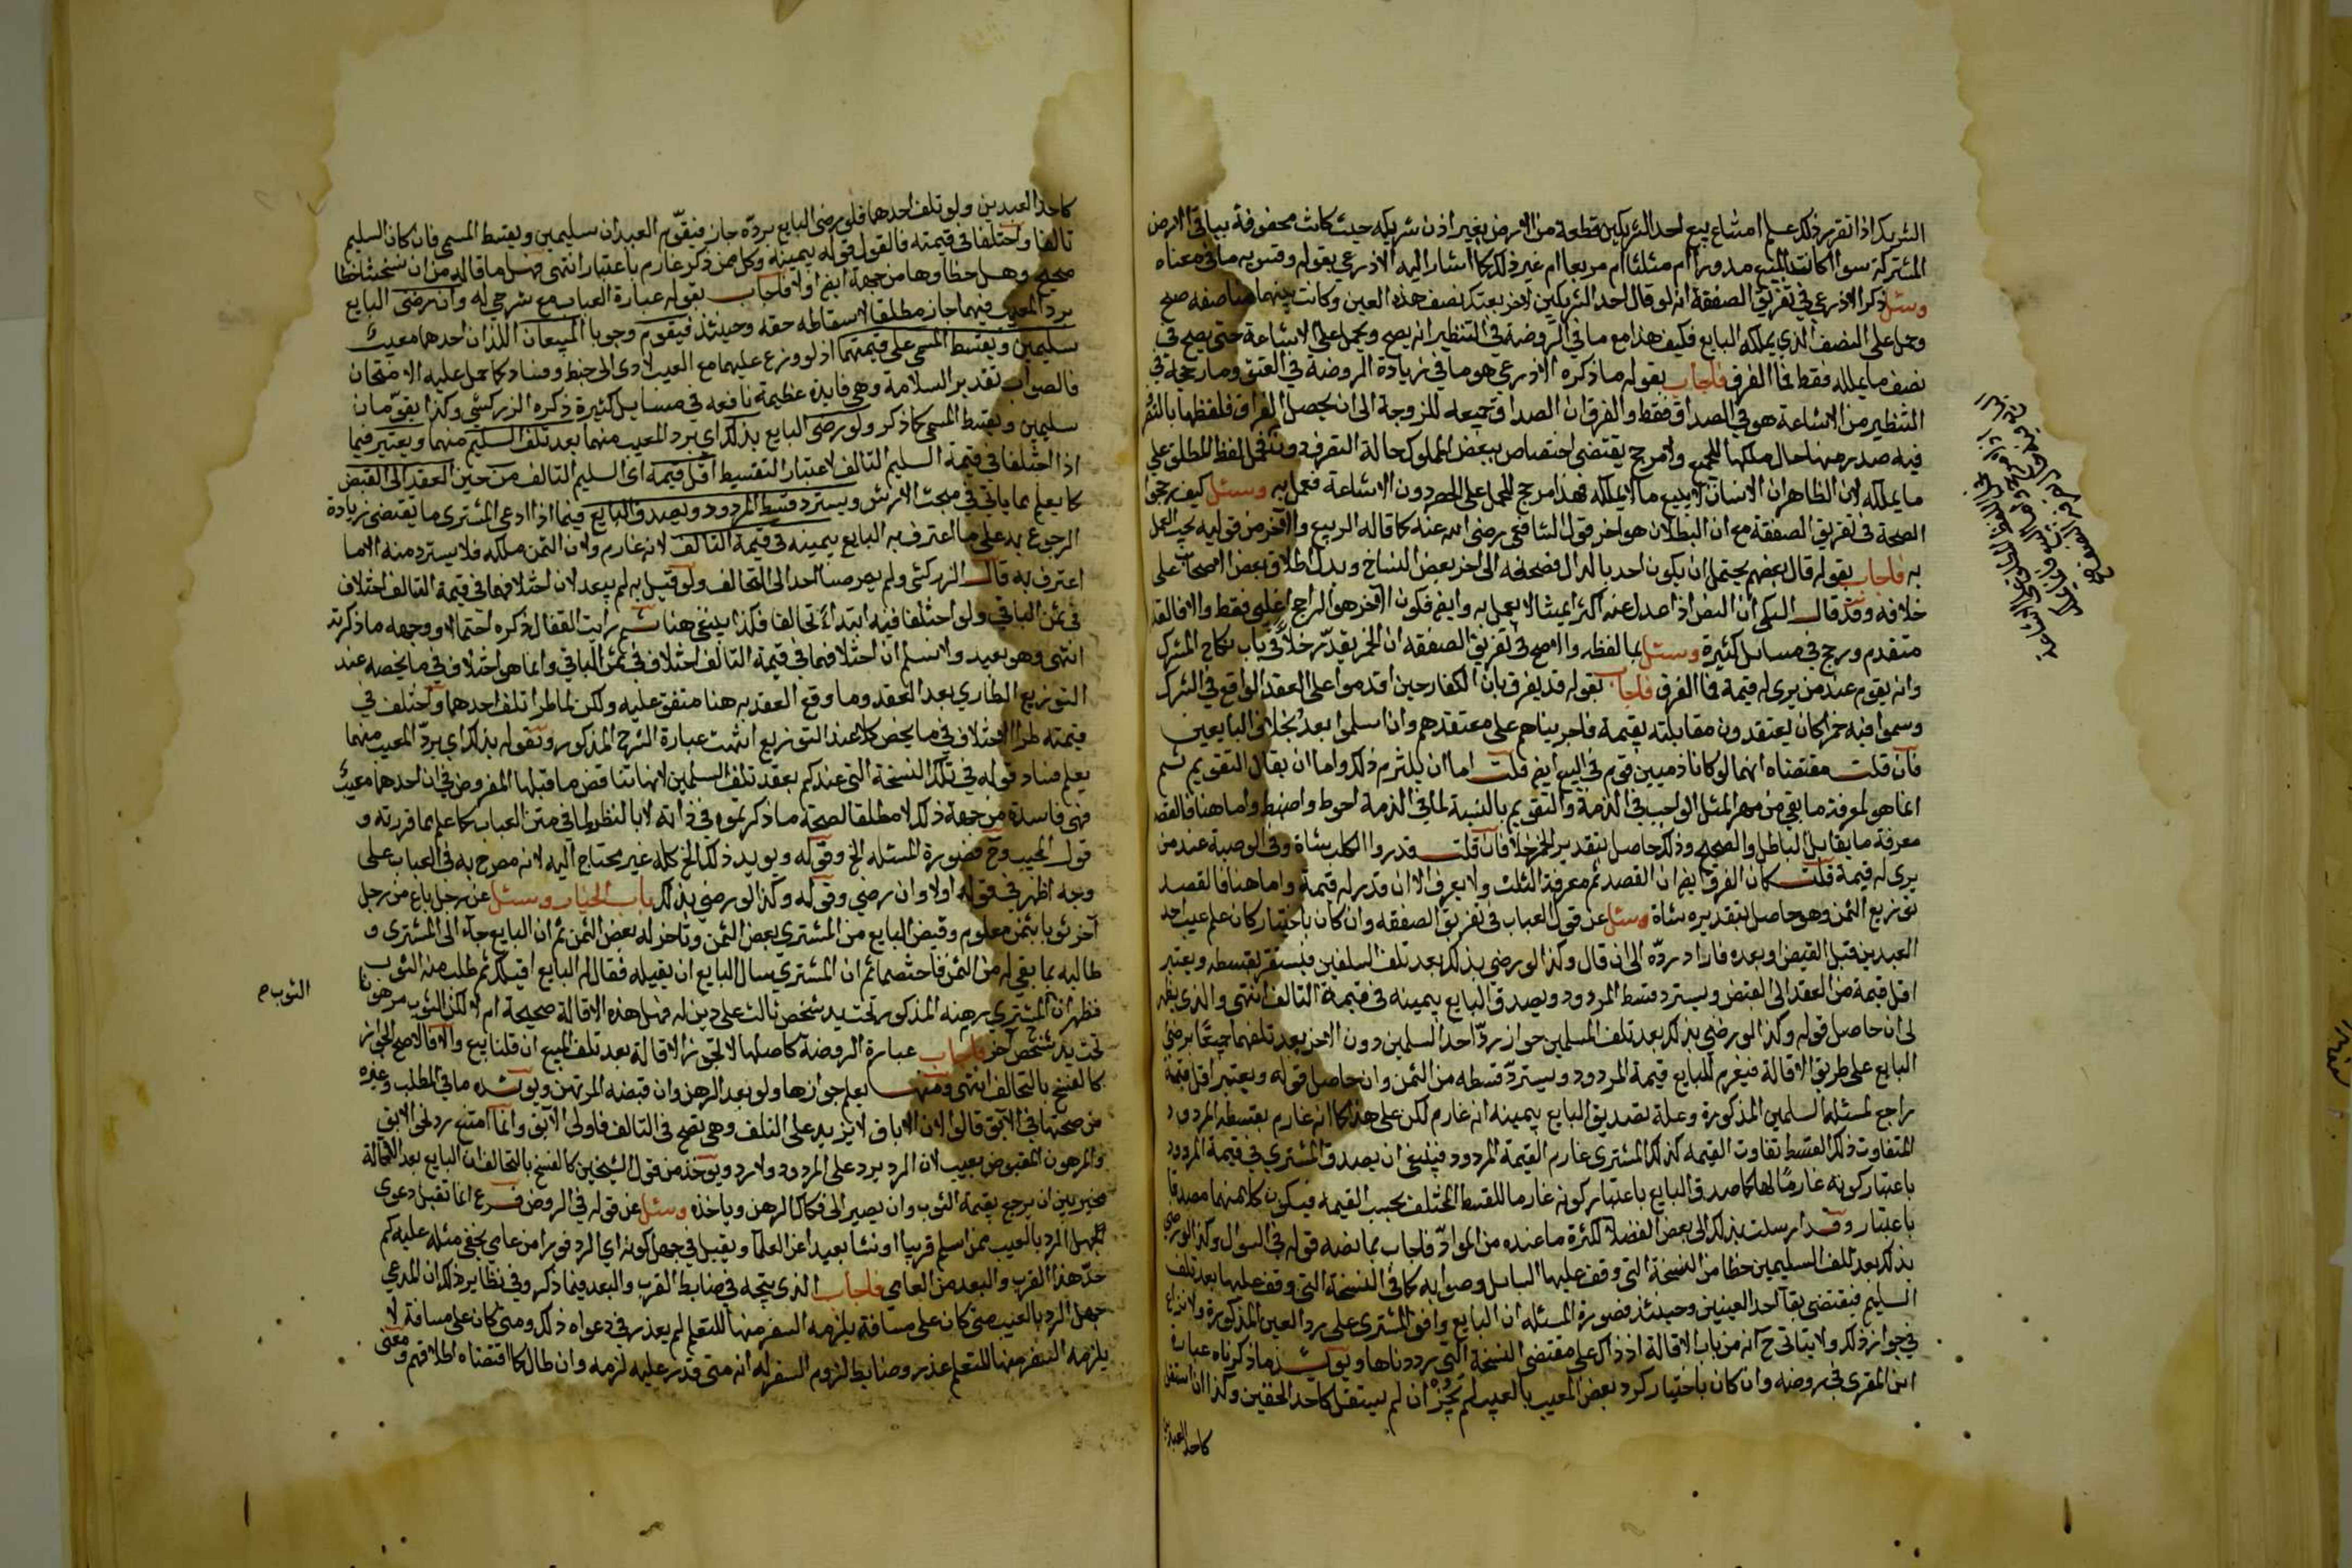 الشريك اذا تقرر ذلك علم امتناع بيع احد الشريكين قطعة من الارض بغير اذن شريكه حيث كانت محفوفة بباقي الارض
المشتركة سوا كانت المبيع مدورا ام مثلثا ام مربعا ام غير ذلك كما اشار اليه الاذرعي بقوله وقس به ما في معناه
وسئل ذكر الاذرعي في تفريق الصفقة انه لو قال احد الشريكين لاخر بعتك نصف هذه العين وكانت بينهما مناصفه صح
وحمل على النصف الذي يملكه البايع فكيف هذا مع ما في الروضة في التنظير انه يصح ويحمل على الاشاعة حتى يصح في
نصف ما يملكه فقط فما الفرق فاجاب بقوله ما ذكره الاذرعي هو ما في زيادة الروضة في العتق وما رجحه في
التنظير من الاشاعة هو في الصداق فقط والفرق ان الصداق جميعه للزوجة الى ان يحصل الفراق فلفظها بالتنصيف
فيه صدر منها حال ملكها للجميع ولا مرجح يقتضي اختصاص ببعض المملوك حالة التصرف دون اللفظ المطلق على
ما يملكه لان الظاهر ان الانسان لا يبيع ما لا يملكه فهذا مرجح للحمل على الحصر دون الاشاعة فعمل به وسئل كيف رجحوا
الصحة في تفريق الصفقة مع ان البطلان هو اخر قولي الشافعي رضي الله عنه كما قاله الربيع والاخر من قوليه يجب العمل
به فاجاب بقوله قال بعضهم يحتمل ان يكون احد بالدال فصحفه الى اخر بعض النساخ وبدل اطلاق بعض الاصحاب على
خلافه وقد قال السبكي ان النص اذا عدل عنه اكثر ائمتنا لا يعمل به وايضا فكون الاخر هو الراجح اغلبي فقط والا فالقديم
متقدم ورجح في مسائل كثيرة وسئل بما لفظه والاصح في تفريق الصفقة ان الخمر يقدر خلا وفي باب نكاح المشرك
وانه يقوم عند من يرى له قيمة فما الفرق فاجاب بقوله قد يفرق بان الكفار حين اقدموا على العقد الواقع في الشرك
وسموا فيه خمرا كان يعتقدون مقابلته بقيمة فاجريناهم على معتقدهم وان اسلموا بعد بخلاف البايعين
فان قلت مقتضاه انهما لو كانا ذميين قوم في البيع ايضا قلت اما ان يلتزم ذلك واما ان يقال التقويم ثم
انما هو لمعرفة ما بقي من مهر المثل الواجب في الذمة والتقويم بالنسبة لما في الذمة احوط واضبط واما هنا فالقصد
معرفة ما يقابل الباطل والصحيح وذلك حاصل بتقدير الخمر خلا فان قلت قدروا الكلب شاة وفي الوصية عند من
يرى له قيمة قلت كان الفرق ايضا ان القصد ثم معرفة الثلث ولا يعرف الا ان قدر له قيمة واما هنا فالقصد
توزيع الثمن وهو حاصل بتقديره شاة وسئل عن قول العباب في تفريق الصفقة وان كان باختيار كان علم عيب احد
العبدين قبل القبض او بعده فاراد رده الى ان قال وكذا لو رضي بذلك بعد تلف السلعين فيستقر بقسطه ويعتبر
اقل قيمة من العقد الى القبض ويسترد قسط المردود ويصدق البايع بيمينه في قيمة التالف انتهى والذي يظهر
لي ان حاصل قوله وكذا لو رضي بذلك بعد تلف المسلمين جواز رد احد السلمين دون الاخر بعد تلفهما جميعا برضى
البايع على طريق الاقالة فيغرم للبايع قيمة المردود ويسترد قسطه من الثمن وان حاصل قوله ويعتبر اقل قيمة
راجع لمسئلة السلمين المذكورة وعلة تصديق البايع بيمينه انه غارم لكن على هذا كما انه غارم بقسطه المردود
المتفاوت ذلك القسط تفاوت القيمه كذلك المشتري غارم القيمة المردود فينبغي ان يصدق المشتري في قيمة المردود
باعتبار كونه غارما لها كما صدق البايع باعتبار كونه غارما للقسط المختلف بحسب القيمه فيكون كلا منهما مصدقا
باعتبار وقد ارسلت بذلك الى بعض الفضلا لكثرة ما عنده من المواد فاجاب بما نصه قوله في السوال وكذا لو رضي
بذلك بعد تلف السليمين خطا من النسخة التي وقف عليها السائل وصوابه كما في النسخة التي وقف عليها بعد تلف
السليم فيقتضي بقا احد العينين وحينئذ فصورة المسئله ان البايع وافق المشتري على رد العين المذكورة ولا نزاع
في جواز ذلك ولا يتاتى ح انه من باب الاقالة اذ ذاك على مقتضى النسخة التي رددناها ويويد ما ذكرناه عبارة
ابن المقري في روضه وان كان باختيار كرد بعض المعيب بالعيب لم يجز ان لم يستقل كاحد الخفين وكذا ان استقل
كاحد العبدين
كاحد العبدين ولو تلف احدهما فلو رضي البايع برده جاز فيقوم العبدان سليمين ويقسط المسمى فان كان السليم
تالفا واختلفا في قيمته فالقول قوله بيمينه وكل من ذكر غارم باعتبار انتهى فهل ما قاله من ان نسختنا خطا
صحيح وهل خطاوها من جهة ايضا او لا فاجاب بقوله عبارة العباب مع شرحي له وان رضي البايع
برد المعيب فيهما جاز مطلقا لاسقاطه حقه وحينئذ فيقوم وجوبا المبيعان اللذان احدهما معيب
سليمين ويقسط المسمى على قيمتهما اذ لو وزع عليهما مع العيب لادى الى خبط وفساد كما حمل عليه الامتحان
فالصواب تقدير السلامة وهي فايدة عظيمة نافعه في مسايل كثيرة ذكره الزركشي وكذا يقومان
سليمين ويقسط المسمى كما ذكر ولو رضي البايع بذلك اي برد المعيب منهما بعد تلف السليم منهما ويعتبر فيما
اذا اختلفا في قيمة السليم التالف لاعتبار التقسيط اقل قيمه اي السليم التالف من حين العقد الى القبض
كما يعلم مما ياتي في مبحث الارش ويسترد قسط المردود ويصدق البايع فيما اذا ادعى المشتري ما يقتضي زيادة
الرجوع به على ما اعترف به البايع بيمينه في قيمة التالف لانه غارم ولان الثمن ملكه فلا يسترد منه الا ما
اعترف به قال الزركشي ولم يصر منا احد الى التحالف ولو قيل به لم يبعد لان اختلافهما في قيمة التالف اختلاف
في ثمن الباقي ولو اختلفا فيه ابتداء تحالفا فكذا ينبغي هنا ثم رايت القفال ذكره احتمالا ووجهه ما ذكرته
انتهى وهو بعيد ولا نسلم ان اختلافهما في قيمة التالف اختلاف في ثمن الباقي وانما هو اختلاف في ما يخصه عند
التوزيع الطاري بعد العقد وما وقع العقد به هنا متفق عليه ولكن لما طرا تلف احدهما واختلف في
قيمته طرا الاختلاف في ما يخص كلا عند التوزيع انتهت عبارة الشرح المذكور وبقوله بذلك اي برد المعيب منهما
يعلم فساد قوله في تلك النسخة التي عندكم بعقد تلف السلمين لانها تناقض ما قبلها المفروض في ان احدهما معيب
فهي فاسدة من جهة ذلك لا مطلقا لصحة ما ذكرتموه في ذاته لا بالنظر لما في متن العباب كما علم مما قررته و
قول المجيب وح فصورة المسئله الخ وقوله ويويد ذلك الخ كله غير محتاج اليه لانه مصرح به في العباب على
وجه اظهر في قوله اولا وان رضي وقوله وكذا لو رضي بذلك باب الخيار وسئل عن رجل باع من رجل
آخر ثوبا بثمن معلوم وقبض البايع من المشتري بعض الثمن وتاخر له بعض الثمن ثم ان البايع جآء الى المشتري و
طالبه بما بقي له من الثمن فاختصما ثم ان المشتري سال البايع ان يقيله فقال له البايع اقيلك ثم طلب منه الثوب
فظهر ان المشتري رهنه المذكور تحت يد شخص ثالث على دين له فهل هذه الاقالة صحيحة ام لا لكن الثوب مرهونا
تحت يد شخص آخر فاجاب عبارة الروضة كاصلها لا تجوز الاقالة بعد تلف المبيع ان قلنا بيع والا فالاصح الجواز
كالفسخ بالتحالف انتهى ومنه يعلم جوازها ولو بعد الرهن وان قبضه المرتهن ويويده ما في المطلب وغيره
من صحتها في الآبق قالوا لان الاباق لا يزيد على التلف وهي تصح في التالف فاولى الآبق وانما امتنع رد نحو الابق
والمرهون المقبوض بعيب لان الرد يرد على المردود ولا رد ويوخذ من قول الشيخين كالفسخ بالتحالف ان البايع بعد الاقالة
مخير بين ان يرجع بقيمة الثوب وان يصير الى فكاك الرهن وياخذه وسئل عن قوله في الروض فرع انما تقبل دعوى
الجهل الرد بالعيب ممن اسلم قريبا او نشا بعيدا عن العلما ويقبل في جهل كونه اي الرد فورا من عامي يخفى مثله عليه كم
حد هذا القرب والبعد من العامي فاجاب الذي يتجه في ضابط القرب والبعد فيما ذكر وفي نظايره ذلك ان المدعي
جهل الرد بالعيب متى كان على مسافة يلزمه السفر منها للتعلم لم يعذر في دعواه ذلك ومتى كان على مسافة لا
يلزمه السفر منها للتعلم عذر وضابط لزوم السفر له انه متى قدر عليه لزمه وان طال كما اقتضاه اطلاقهم ومعنى
الثوب ح